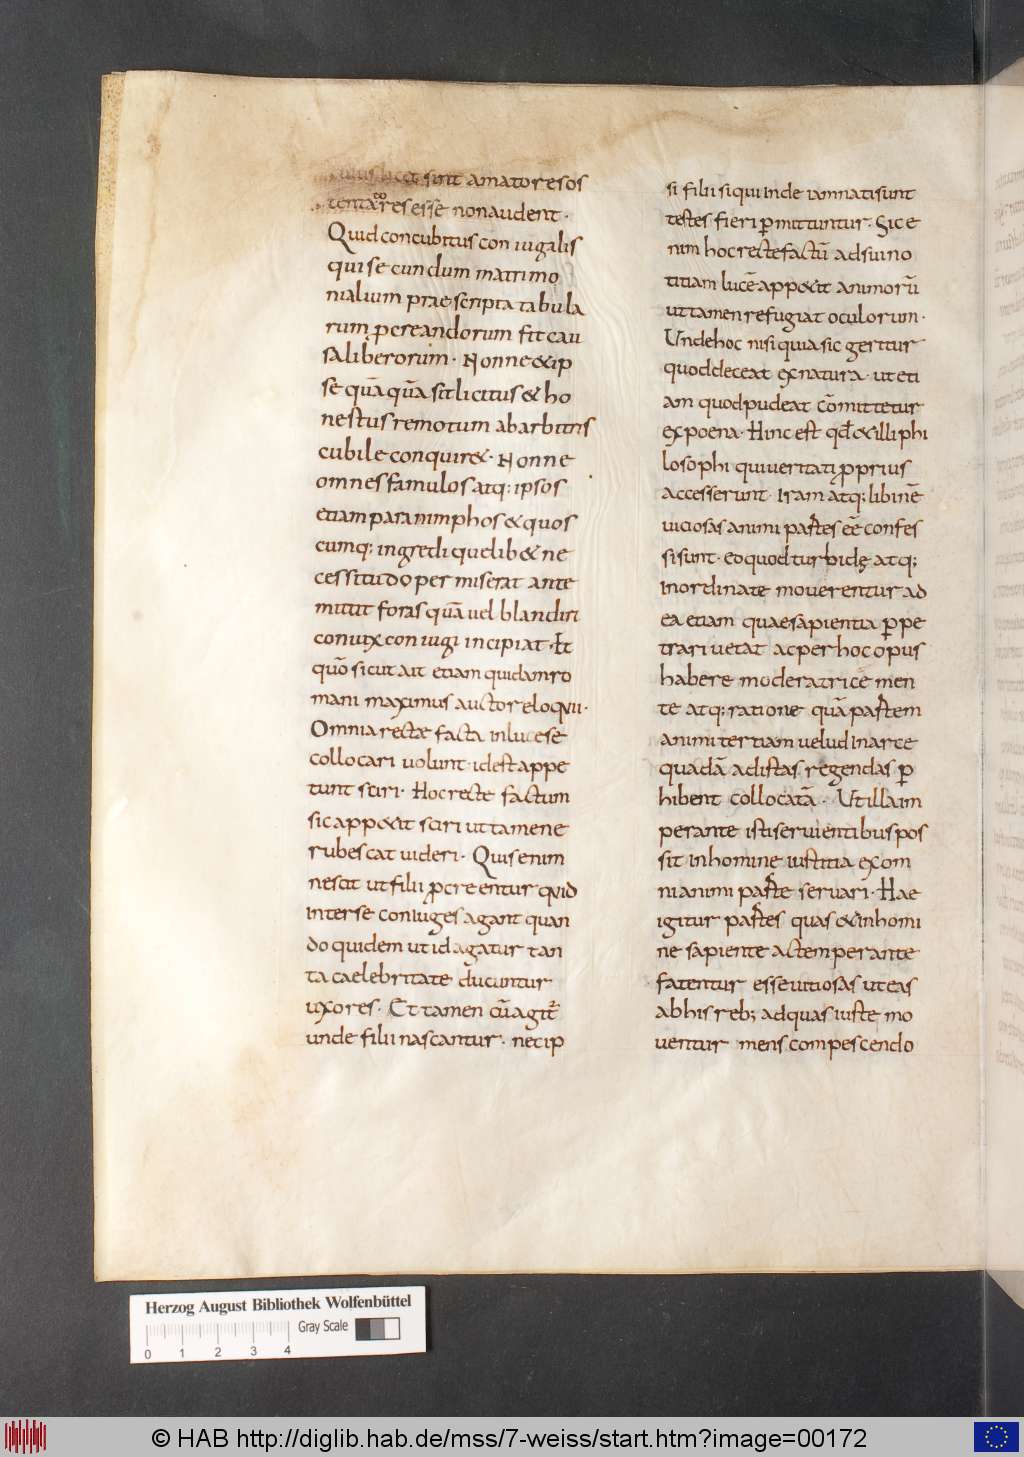 licet sint amatores os
tentatores esse non audent·
Quid concubitus coniugalis
qui secundum matrimo
nialium praescripta tabula
rum ꝓcreandorum fit cau
sa liberorum· Nonne & ip
se quā quā sit licitus & ho
nestus remotum ab arbitris
cubile conquir&· Nonne
omnes famulos atq; ipsos
etiam paranimphos & quos
cumq; ingredi quelib& ne
cessitudo permiserat ante
mittit foras quā uel blandiri
coniux coniugi incipiat· Et
quō sicut ait etiam quidam ro
mani maximus auctor eloquii·
Omnia rectæ facta in luce se
collocari uolunt· id est appe
tunt sciri· Hoc recte factum
sic app&it sciri ut tamen e
rubescat uideri· Quis enim
nescit ut filii ꝓcreentur quid
inter se coniuges agant quan
do quidem ut id agatur tan
ta caelebritate ducuntur
uxores· Et tamen cū agit̄
unde filii nascantur· nec ip
si filii si qui inde iam nati sunt
testes fieri ꝑmittuntur· Sic e
nim hoc recte factū ad sui no
titiam lucē app&it animorū
ut tamen refugiat oculorum·
Unde hoc nisi quia sic geritur
quod deceat ex natura· ut eti
am quod pudeat cōmittetur
ex poena· Hinc est qđ & illi phi
losophi qui ueritati ꝓprius
accesserunt· Iram atq; libinē
uiciosas animi partes eē confes
si sunt· eo quod turbidę atq;
inordinate mouerentur ad
ea etiam quae sapientia ꝑpe
trari uetat ac per hoc opus
habere moderatrice men
te atq; ratione quā partem
animi tertiam uelud in arce
quadā ad istas regendas ꝑ
hibent collocatā· Ut illa im
perante istis eruientibus pos
sit in homine iustitia ex om
ni animi parte seruari· Hae
igitur partes quas & in homi
ne sapiente ac temperante
fatentur esse uitiosas ut eas
ab his reb; ad quas iuste mo
uentur mens compescendo
Herzog August Bibliothek Wolfenbüttel
Gray Scale
0 1 2 3 4
© HAB http://diglib.hab.de/mss/7-weiss/start.htm?image=00172